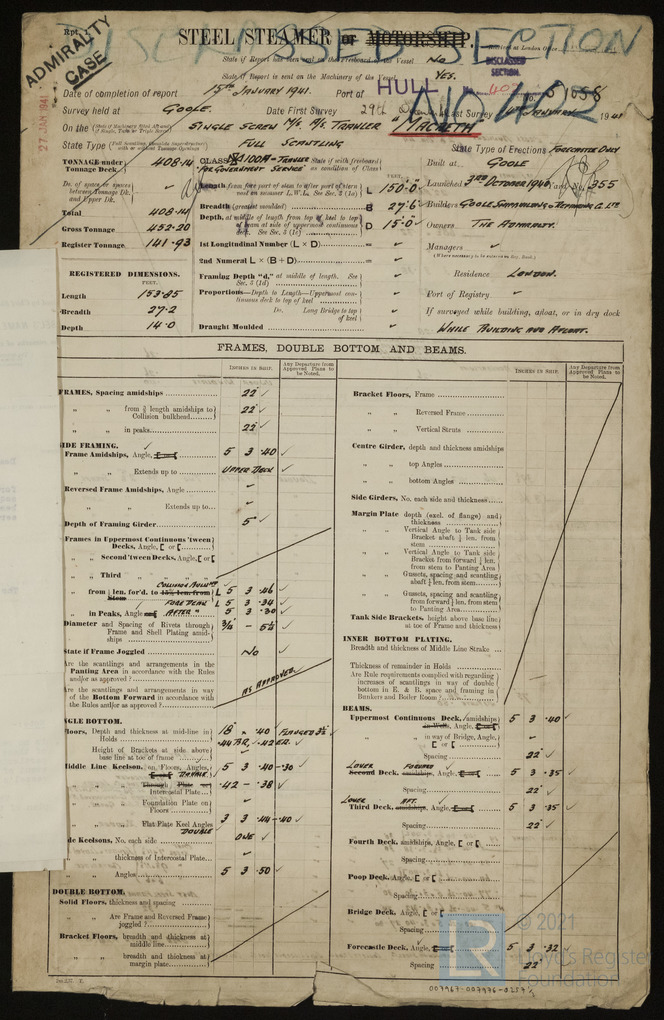 Rpt.
DISCLASSED SECTION
STEEL STEAMER OR MOTORSHIP.
ADMIRALTY CASE
27 JAN 1941
State if Report has been sent on the Freeboard of the Vessel No
DISCLASSED SECTION.
State if Report is sent on the Machinery of the Vessel YES.
Date of completion of report 15TH JANUARY 1941. Port of HULL
Survey held at GOOLE. Date First Survey 29th Last Survey JANUARY 1941
On the SINGLE SCREW M/S. A/S. TRAWLER "MACBETH"
State Type FULL SCANTLING State Type of Erections FORECASTLE ONLY
TONNAGE under Tonnage Deck 408.14
CLASS 100A - TRAWLER "FOR GOVERNMENT SERVICE" State if with freeboard as condition of Class
Built at GOOLE
Do. of space or spaces between Tonnage Dk. and Upper Dk.
Length from fore part of stem to after part of stern post on summer L.W.L. See Sec. 2 (1a) L 150'.0"
Launched 3RD OCTOBER 1940 Yard No. 355
Total 408.14
Breadth (greatest moulded) B 27'.6"
Builders GOOLE SHIPBUILDING & REPAIRING C. LTD
Gross Tonnage 452.20
Depth, at middle of length from top of keel to top of beam at side of uppermost continuous deck. See Sec. 5 (1c) D 15'.0"
Owners THE ADMIRALTY.
Register Tonnage 141.93
1st Longitudinal Number (L × D) =
Managers
2nd Numeral L × (B + D) =
REGISTERED DIMENSIONS.
FEET.
Framing Depth "d," at middle of length. See Sec. 5 (1d)
Residence LONDON.
Length 153.85
Proportions—Depth to Length—Uppermost continuous deck to top of keel
Port of Registry
Breadth 27.2
Do. Long Bridge to top of keel
If surveyed while building, afloat, or in dry dock
Depth 14.0
Draught Moulded
WHILE BUILDING AND AFLOAT.
FRAMES, DOUBLE BOTTOM AND BEAMS.
INCHES IN SHIP.
Any Departure from Approved Plans to be Noted.
INCHES IN SHIP.
Any Departure from Approved Plans to be Noted.
FRAMES, Spacing amidships 22"
" " from ⅗ length amidships to Collision bulkhead 22"
" " in peaks 22"
SIDE FRAMING.
Frame Amidships, Angle, 5 3 .40
" " Extends up to UPPER DECK
Reversed Frame Amidships, Angle
" " Extends up to
Depth of Framing Girder 5"
Frames in Uppermost Continuous 'tween Decks, Angle, [ or [
" " Second 'tween Decks, Angle, [ or [
" " Third " "
COLLISION BULKHD
" from ⅕ len. for'd. to 15% len. from Stem L 5 3 .46
FORE PEAK L 5 3 .34
" in Peaks, Angle AFTER " 5 3 .30
Diameter and Spacing of Rivets through Frame and Shell Plating amidships 3/4 - 5¼
State if Frame Joggled No
Are the scantlings and arrangements in the Panting Area in accordance with the Rules and/or as approved? AS APPROVED.
Are the scantlings and arrangements in way of the Bottom Forward in accordance with the Rules and/or as approved?
SINGLE BOTTOM.
Floors, Depth and thickness at mid-line in Holds 18" × .40 FLANGED 3½
.44 B.R., .42 E.R.
Height of Brackets at side above base line at toe of frame
Middle Line Keelson, on Floors, Angles, DOUBLE 5 3 .40 - .30
" " Through Plate or Intercostal Plate .42 - .38
" " Foundation Plate on Floors
" " Flat Plate Keel Angles DOUBLE 3 3 .44 - .40
Side Keelsons, No. each side ONE
" " thickness of Intercostal Plate
" " Angles 5 3 .50
DOUBLE BOTTOM.
Solid Floors, thickness and spacing
" " Are Frame and Reversed Frame joggled?
Bracket Floors, breadth and thickness at middle line
" " breadth and thickness at margin plate
Bracket Floors, Frame
" " Reversed Frame
" " Vertical Struts
Centre Girder, depth and thickness amidships
" " top Angles
" " bottom Angles
Side Girders, No. each side and thickness
Margin Plate depth (excl. of flange) and thickness
" " Vertical Angle to Tank side Bracket abaft ¼ len. from stem
" " Vertical Angle to Tank side Bracket from forward ¼ len. from stem to Panting Area
" " Gussets, spacing and scantling abaft ¼ len. from stem
" " Gussets, spacing and scantling from forward ¼ len. from stem to Panting Area
Tank Side Brackets, height above base line at toe of Frame and thickness
INNER BOTTOM PLATING.
Breadth and thickness of Middle Line Strake
Thickness of remainder in Holds
Are Rule requirements complied with regarding increases of scantlings in way of double bottom in E. & B. space and framing in Bunkers and Boiler Room?
BEAMS.
Uppermost Continuous Deck, amidships in Wells, Angle, 5 3 .40
" " in way of Bridge, Angle, [ or [
Spacing 22"
LOWER FORWARD
Second Deck, amidships, Angle, 5 3 .35
Spacing 22"
LOWER AFT.
Third Deck, amidships, Angle, 5 3 .35
Spacing 22"
Fourth Deck, amidships, Angle, [ or [
Spacing
Poop Deck, Angle, [ or [
Spacing
Bridge Deck, Angle, [ or [
Spacing
Forecastle Deck, Angle, 5 3 .32
Spacing 22"
© 2021
Lloyd's Register
Foundation
LR